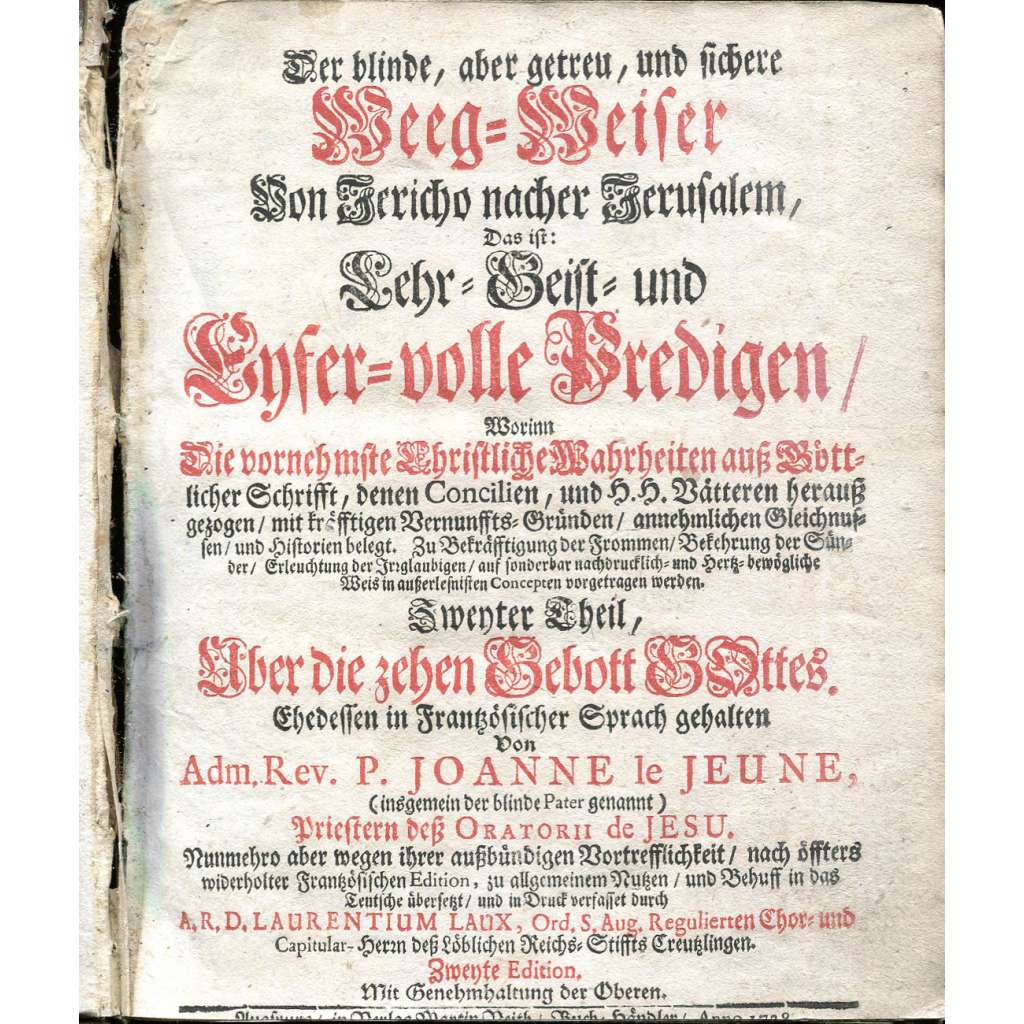 Der blinde, aber getreu, und sichere
Weeg=Weiser
Von Jericho nacher Jerusalem,
Das ist:
Lehr= Geist= und
Eyfer=volle Predigen/
Worinn
Die vornehmste Christliche Wahrheiten auß Gött=
licher Schrifft, denen Concilien, und H.H. Vätteren herauß
gezogen/ mit kräfftigen Vernunffts=Gründen/ annehmlichen Gleichnus=
sen/ und Historien belegt. Zu Bekräfftigung der Frommen/ Bekehrung der Sün=
der/ Erleuchtung der Irrglaubigen/ auf sonderbar nachdrucklich= und Hertz=bewögliche
Weis in außerlesnisten Concepten vorgetragen werden.
Zweyter Theil,
Uber die zehen Gebott GOttes.
Ehedessen in Frantzösischer Sprach gehalten
Von
Adm. Rev. P. JOANNE le JEUNE,
(insgemein der blinde Pater genannt)
Priestern deß ORATORII de JESU.
Nunmehro aber wegen ihrer außbündigen Vortrefflichkeit/ nach öffters
widerholter Frantzösischen Edition, zu allgemeinem Nutzen/ und Behuff in das
Teutsche übersetzt/ und in Druck verfasset durch
A. R. D. LAURENTIUM LAUX, Ord. S. Aug. Regulierten Chor= und
Capitular=Herrn deß Löblichen Reichs=Stiffts Creutzlingen.
Zweyte Edition.
Mit Genehmhaltung der Oberen.
Augspurg/ in Verlag Martin Veith/ Buch=Händler/ Anno 1738